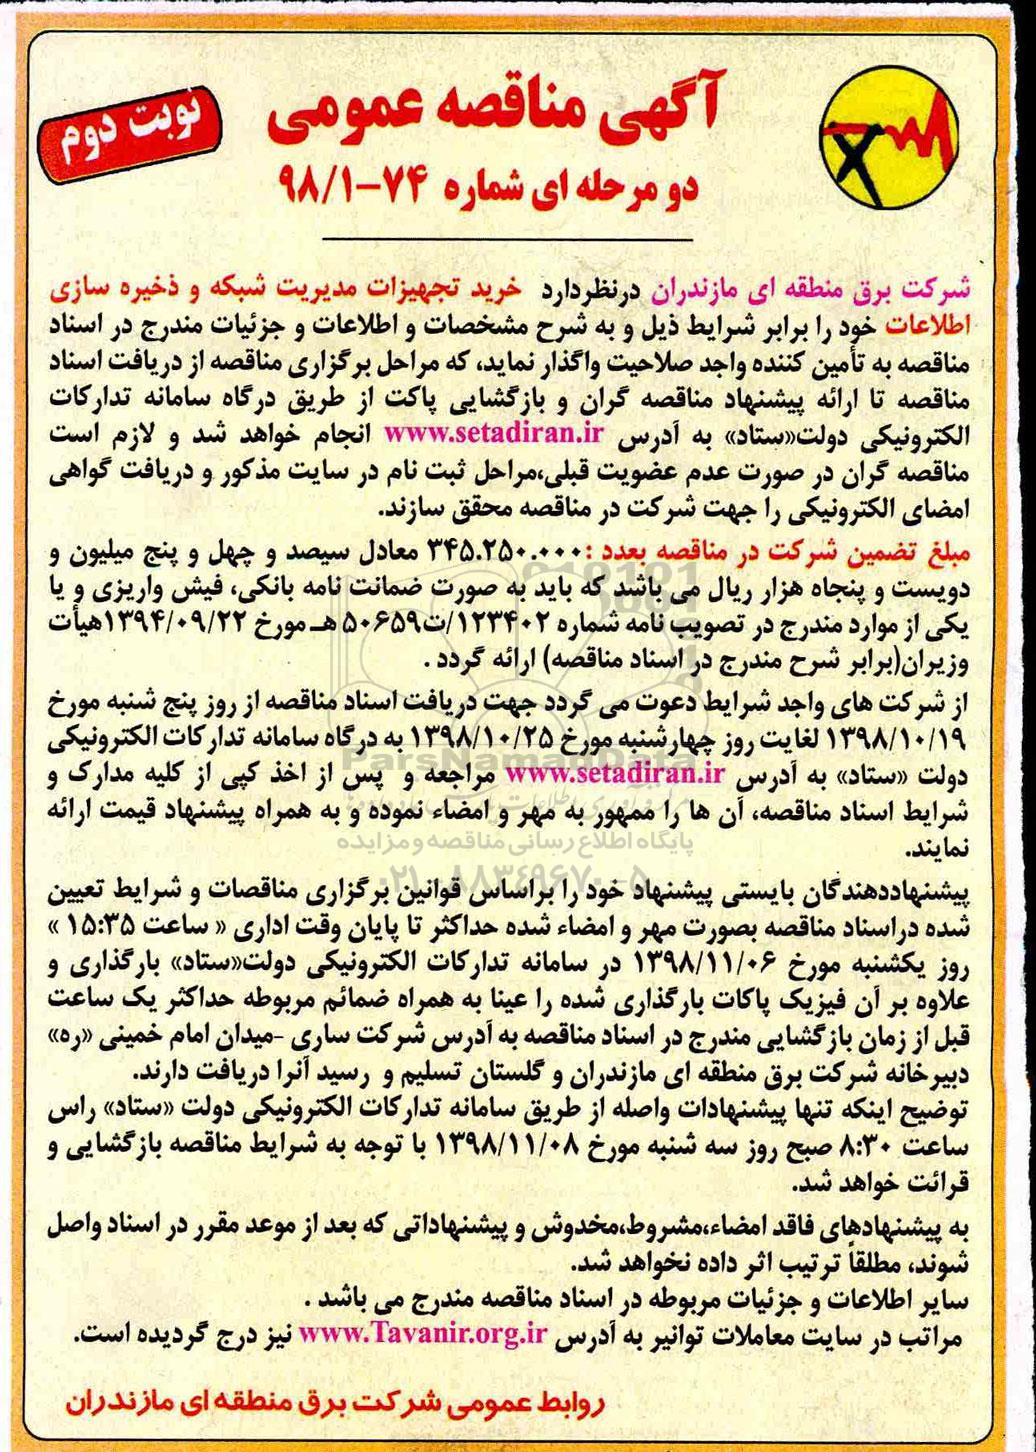 آگهی مناقصه عمومی
نوبت دوم
دو مرحله ای شماره ۷۴-۹۸/۱
شرکت برق منطقه ای مازندران درنظردارد خرید تجهیزات مدیریت شبکه و ذخیره سازی
اطلاعات خود را برابر شرایط ذیل و به شرح مشخصات و اطلاعات و جزئیات مندرج در اسناد
مناقصه به تأمین کننده واجد صلاحیت واگذار نماید، که مراحل برگزاری مناقصه از دریافت اسناد
مناقصه تا ارائه پیشنهاد مناقصه گران و بازگشایی پاکت از طریق درگاه سامانه تدارکات
الکترونیکی دولت«ستاد» به آدرس www.setadiran.ir انجام خواهد شد و لازم است
مناقصه گران در صورت عدم عضویت قبلی،مراحل ثبت نام در سایت مذکور و دریافت گواهی
امضای الکترونیکی را جهت شرکت در مناقصه محقق سازند.
مبلغ تضمین شرکت در مناقصه بعدد :۳۴۵.۲۵۰.۰۰۰ معادل سیصد و چهل و پنج میلیون و
دویست و پنجاه هزار ریال می باشد که باید به صورت ضمانت نامه بانکی، فیش واریزی و یا
یکی از موارد مندرج در تصویب نامه شماره ۱۲۳۴۰۲/ت۵۰۶۵۹ هـ مورخ ۱۳۹۴/۰۹/۲۲هیأت
وزیران(برابر شرح مندرج در اسناد مناقصه) ارائه گردد .
از شرکت های واجد شرایط دعوت می گردد جهت دریافت اسناد مناقصه از روز پنج شنبه مورخ
۱۳۹۸/۱۰/۱۹ لغایت روز چهارشنبه مورخ ۱۳۹۸/۱۰/۲۵ به درگاه سامانه تدارکات الکترونیکی
دولت «ستاد» به آدرس www.setadiran.ir مراجعه و پس از اخذ کپی از کلیه مدارک و
شرایط اسناد مناقصه، آن ها را ممهور به مهر و امضاء نموده و به همراه پیشنهاد قیمت ارائه
نمایند.
پیشنهاددهندگان بایستی پیشنهاد خود را براساس قوانین برگزاری مناقصات و شرایط تعیین
شده دراسناد مناقصه بصورت مهر و امضاء شده حداکثر تا پایان وقت اداری « ساعت ۱۵:۳۵ »
روز یکشنبه مورخ ۱۳۹۸/۱۱/۰۶ در سامانه تدارکات الکترونیکی دولت«ستاد» بارگذاری و
علاوه بر آن فیزیک پاکات بارگذاری شده را عینا به همراه ضمائم مربوطه حداکثر یک ساعت
قبل از زمان بازگشایی مندرج در اسناد مناقصه به آدرس شرکت ساری -میدان امام خمینی «ره»
دبیرخانه شرکت برق منطقه ای مازندران و گلستان تسلیم و رسید آنرا دریافت دارند.
توضیح اینکه تنها پیشنهادات واصله از طریق سامانه تدارکات الکترونیکی دولت «ستاد» راس
ساعت ۸:۳۰ صبح روز سه شنبه مورخ ۱۳۹۸/۱۱/۰۸ با توجه به شرایط مناقصه بازگشایی و
قرائت خواهد شد.
به پیشنهادهای فاقد امضاء،مشروط،مخدوش و پیشنهاداتی که بعد از موعد مقرر در اسناد واصل
شوند، مطلقاً ترتیب اثر داده نخواهد شد.
سایر اطلاعات و جزئیات مربوطه در اسناد مناقصه مندرج می باشد .
مراتب در سایت معاملات توانیر به آدرس www.Tavanir.org.ir نیز درج گردیده است.
روابط عمومی شرکت برق منطقه ای مازندران
ParsNamadData
پایگاه اطلاع رسانی مناقصه و مزایده
۰۲۱-۸۸۳۴۹۶۷۰-۵